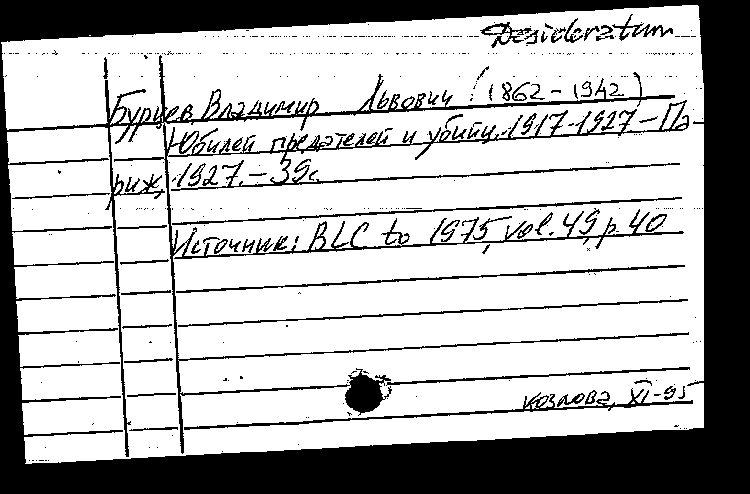 Desideratum
Бурцев, Владимир Львович (1862-1942)
Юбилей предателей и убийц. 1917-1927.-Па-
риж, 1927.-39с.
Источник: BLC to 1975, vol. 49, p. 40
Козлова, XI-95